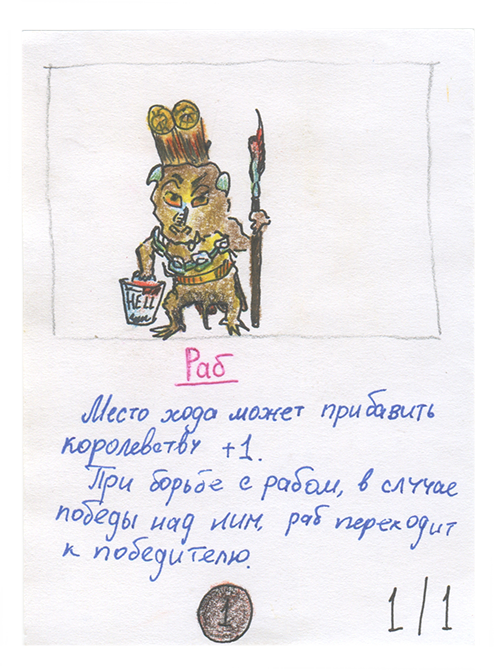 HELL
Раб
Место хода может прибавить
королевству +1.
При борьбе с рабом, в случае
победы над ним, раб переходит
к победителю.
1
1/1